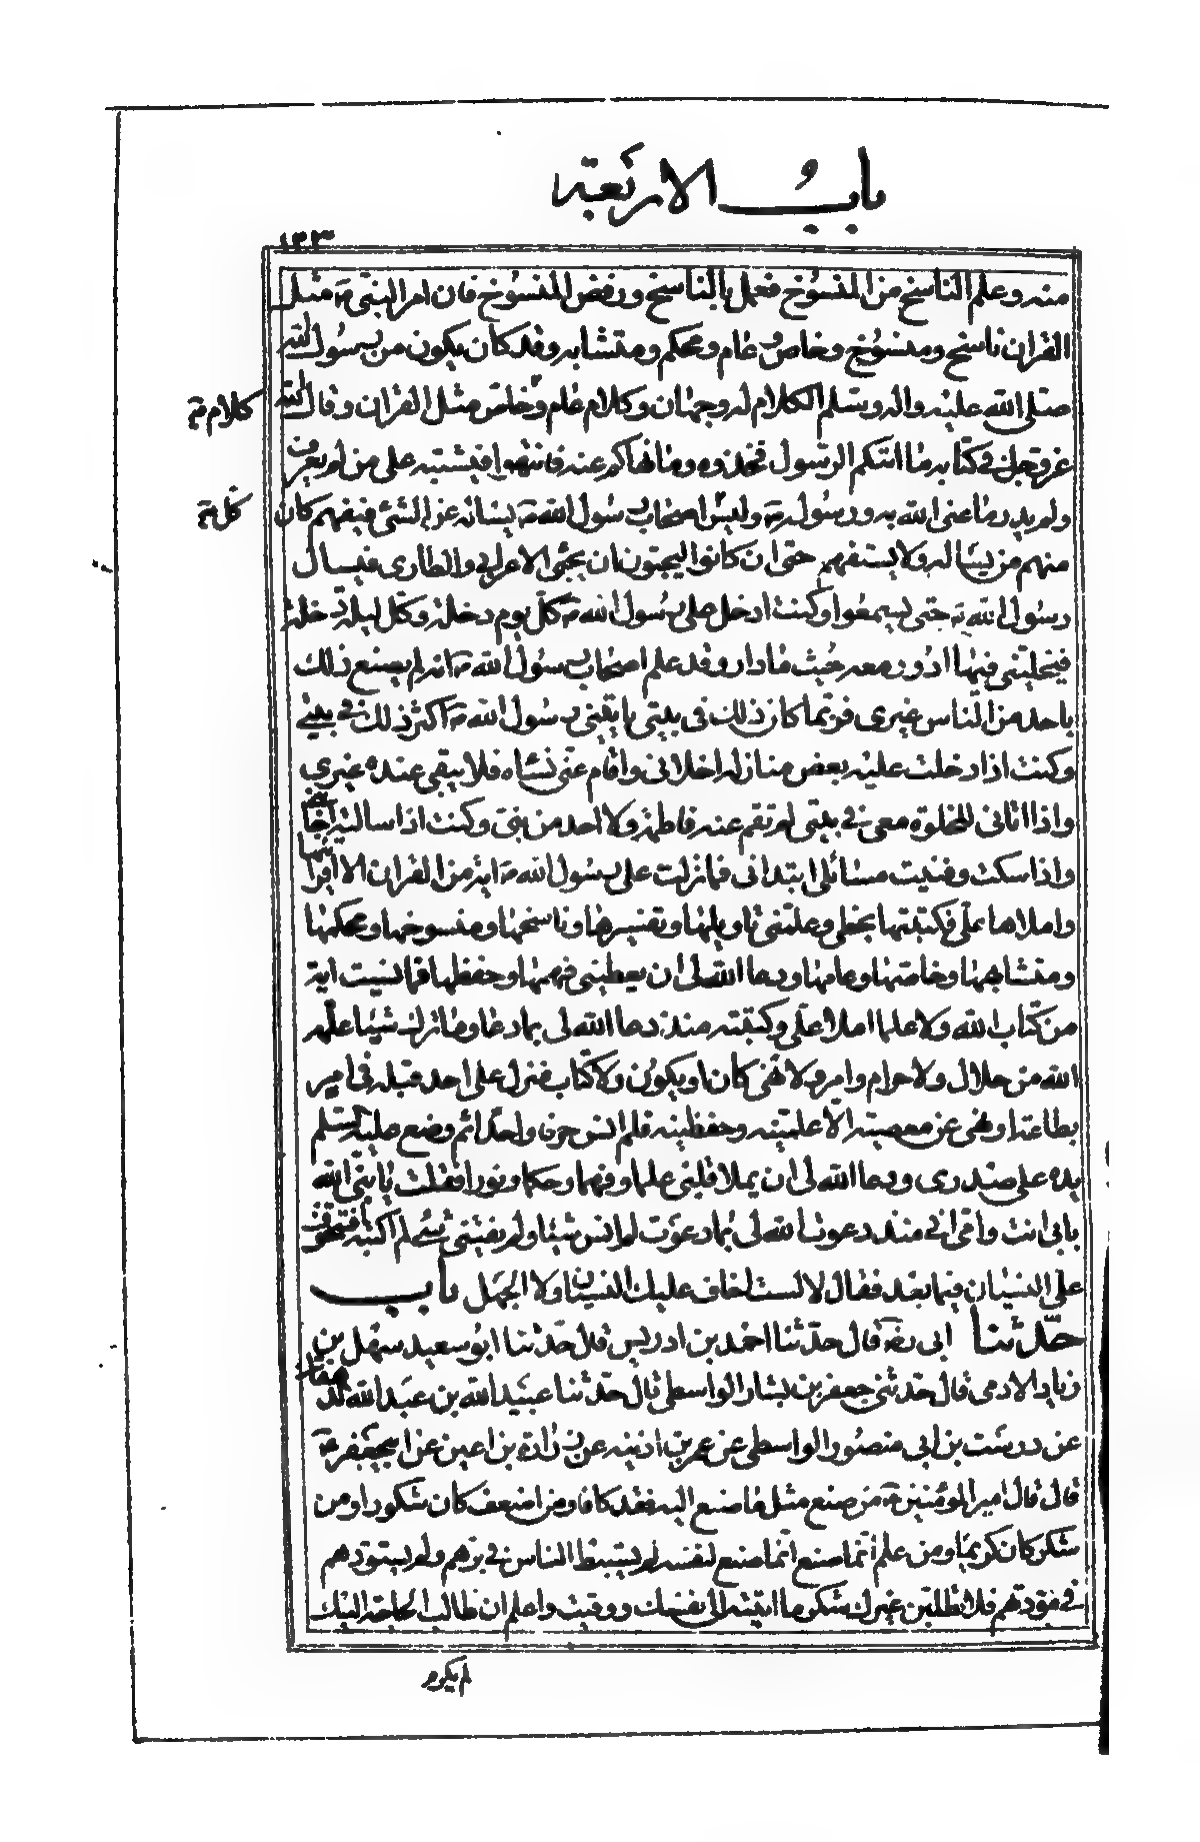 باب الاربعة
١٣٣
منه وعلم الناسخ من المنسوخ فعمل بالناسخ ورفض المنسوخ فان امر النبی ص مثل
القران ناسخ ومنسوخ وخاص وعام ومحكم ومتشابه وقد كان يكون من رسول الله
صلى الله عليه واله وسلم الكلام له وجهان وكلام عام وخاص مثل القران وقال الله
كلام ص
عز وجل فى كتابه ما اتيكم الرسول فخذوه وما نهاكم عنه فانتهوا فيشتبه على من لم يعرف
ولم يدر ما عنى الله به ورسوله ص وليس اصحاب رسول الله ص يسئله عن الشئ فيفهم كان
كل ص
منهم من يسئاله ولا يستفهم حتى ان كانوا ليحبون ان يجئ الاعرابى والطارى فيسال
رسول الله ص حتى يسمعوا وكنت ادخل على رسول الله ص كل يوم دخلة وكل ليلة دخلة
فيخلينى فيها ادور معه حيث ما دار وقد علم اصحاب رسول الله ص انه لم يصنع ذلك
باحد من الناس غيرى فربما كان ذلك فى بيتى ياتينى رسول الله ص اكثر ذلك فى بيتى
وكنت اذا دخلت عليه بعض منازله اخلانى واقام عنى نساه فلا يبقى عنده غيرى
واذا اتانى للخلوة معى فى بيتى لم تقم عنه فاطمة ولا احد من بنى وكنت اذا سالته اجابنى
واذا سكت وفنيت مسائلى ابتدانى فما نزلت على رسول الله ص اية من القران الا اقرانيها
واملاها على فكتبتها بخطى وعلمنى تاويلها وتفسيرها وناسخها ومنسوخها ومحكمها
ومتشابهها وخاصها وعامها ودعا الله لى ان يعطينى فهمها وحفظها فما نسيت اية
من كتاب الله ولا علما املاه على وكتبته منذ دعا الله لى بما دعا وما ترك شيئا علمه
الله من حلال ولا حرام وامر ولا نهى كان او يكون ولا كتاب منزل على احد قبله فى امر
بطاعة او نهى عن معصية الا علمنيه وحفظنيه فلم انس حرفا واحدا ثم وضع صليه لسلم
يده على صدرى ودعا الله لى ان يملا قلبى علما وفهما وحكما ونورا فقلت يا نبى الله
بابى انت وامى انى منذ دعوت الله لى بما دعوت لم انس شيئا ولم يفتنى شئ لم اكتبه افتتخوف
على النسيان فيما بعد فقال لا لست اخاف عليك النسيان ولا الجهل باب
حدثنا ابى رضه قال حدثنا احمد بن ادريس قال حدثنا ابو سعيد سهل بن
زياد الادمى قال حدثنى جعفر بن بشار الواسطى قال حدثنا عبيد الله بن عبد الله الدهقان
عن درست بن ابى منصور الواسطى عن عمر بن اذينه عن زرارة بن اعين عن ابى جعفر ع
قال قال امير المؤمنين ع من صنع مثل ما صنع اليه فقد كافا ومن اضعف كان شكورا ومن
شكر كان كريما ومن علم انما صنع انما صنع لنفسه لم يستبطا الناس فى برهم ولم يستزدهم
فى مودتهم فلا تطلبن غيرك شكر ما اتيته الى نفسك ووقيت واعلم ان طالب الحاجة اليك
لم يكرم